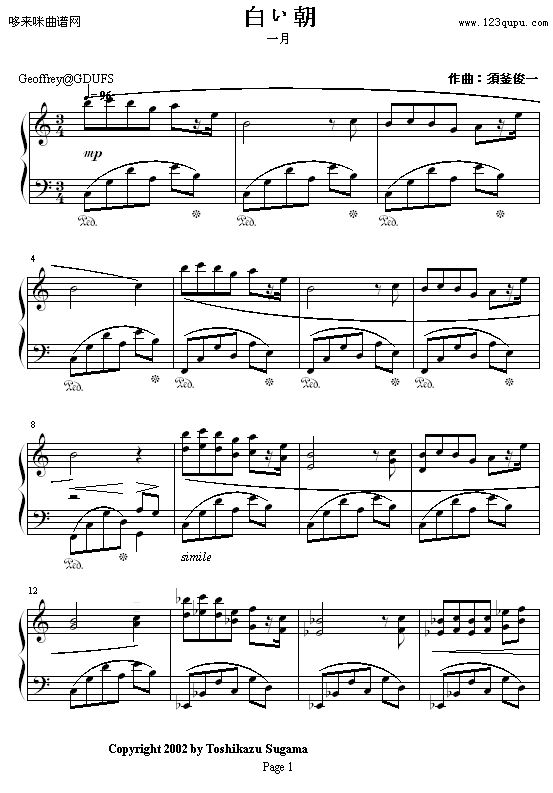 哆来咪曲谱网
白い朝
www.123qupu.com
一月
Geoffrey@GDUFS
作曲：須釜俊一
♩=96
3
4
mp
Ped.
Ped.
4
Ped.
Ped.
Ped.
Ped.
8
Ped.
simile
12
Copyright 2002 by Toshikazu Sugama
Page 1